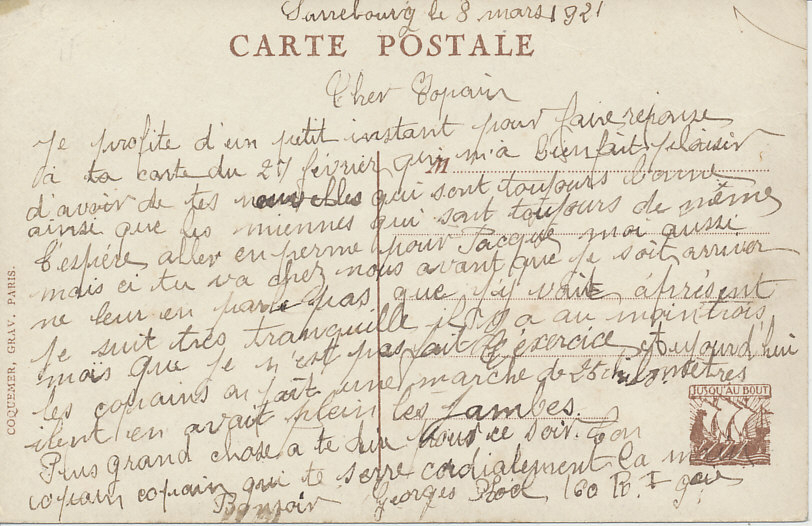 Sarrebourg le 8 mars 1921
CARTE POSTALE
Cher Copain
Je profite d'un petit instant pour faire réponse
à ta carte du 27 février qui m'a bien fait plaisir
M
d'avoir de tes nouvelles qui sont toujours bonne
ainsi que les miennes qui sont toujours de même
J'espére aller en perme pour Pacque moi aussi
mais ci tu va chez nous avant que je soit arriver
ne leur en parle pas que j'y vait áprésent
Je suit très tranquille il y a au moin trois
mois que je n'est pas fait d'éxercice aujourd'hui
les copains on fait une marche de 25 kilomètres
ilent en avait plein les jambes.
Plus grand chose a te dire pour ce soir. Ton
copain copain qui te serre cordialement la main
Bonsoir Georges 160 R. I
COQUEMER, GRAV. PARIS.
JUSQU'AU BOUT